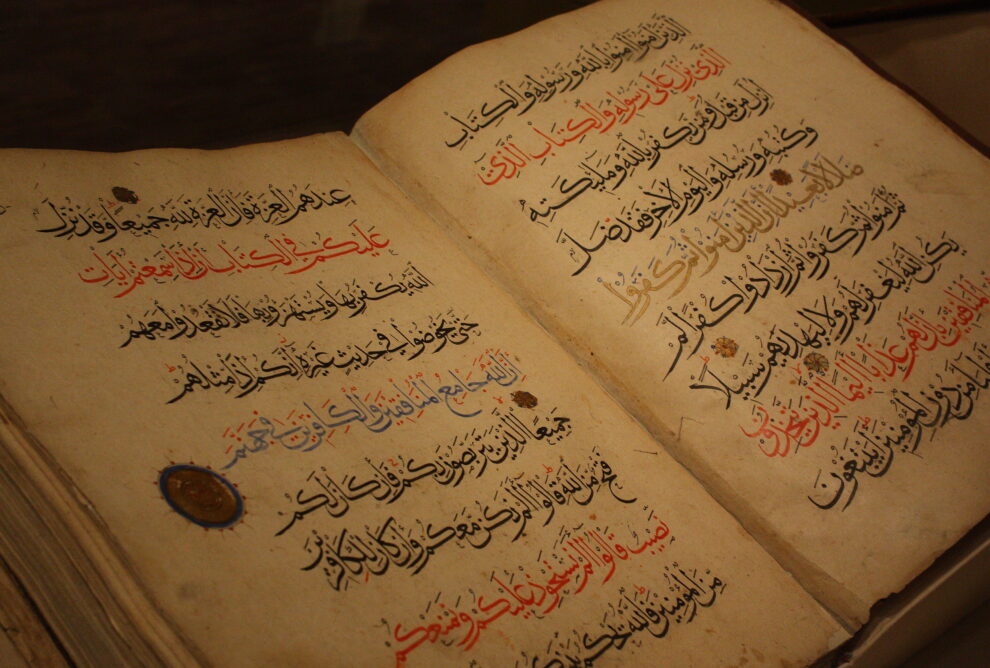 الذين امنوا امنوا بالله ورسوله والكتاب
الذى نزل على رسوله والكتاب الذى
انزل من قبل ومن يكفر بالله وملئكته
وكتبه ورسله واليوم الاخر فقد ضل
ضلالا بعيدا ان الذين امنوا ثم كفروا
ثم امنوا ثم كفروا ثم ازدادوا كفرا لم
يكن الله ليغفر لهم ولا ليهديهم سبيلا
المنافقين بان لهم عذابا اليما الذين يتخذون
من دون المؤمنين ايبتغون
عندهم العزة فان العزة لله جميعا وقد نزل
عليكم في الكتاب ان اذا سمعتم ايات
الله يكفر بها ويستهزؤ بها فلا تقعدوا معهم
حتى يخوضوا في حديث غيره انكم اذا مثلهم
ان الله جامع المنافقين والكافرين في جهنم
جميعا الذين يتربصون بكم فان كان لكم
فتح من الله قالوا الم نكن معكم وان كان للكافرين
نصيب قالوا الم نستحوذ عليكم ونمنعكم
من المؤمنين فالله يحكم بينكم